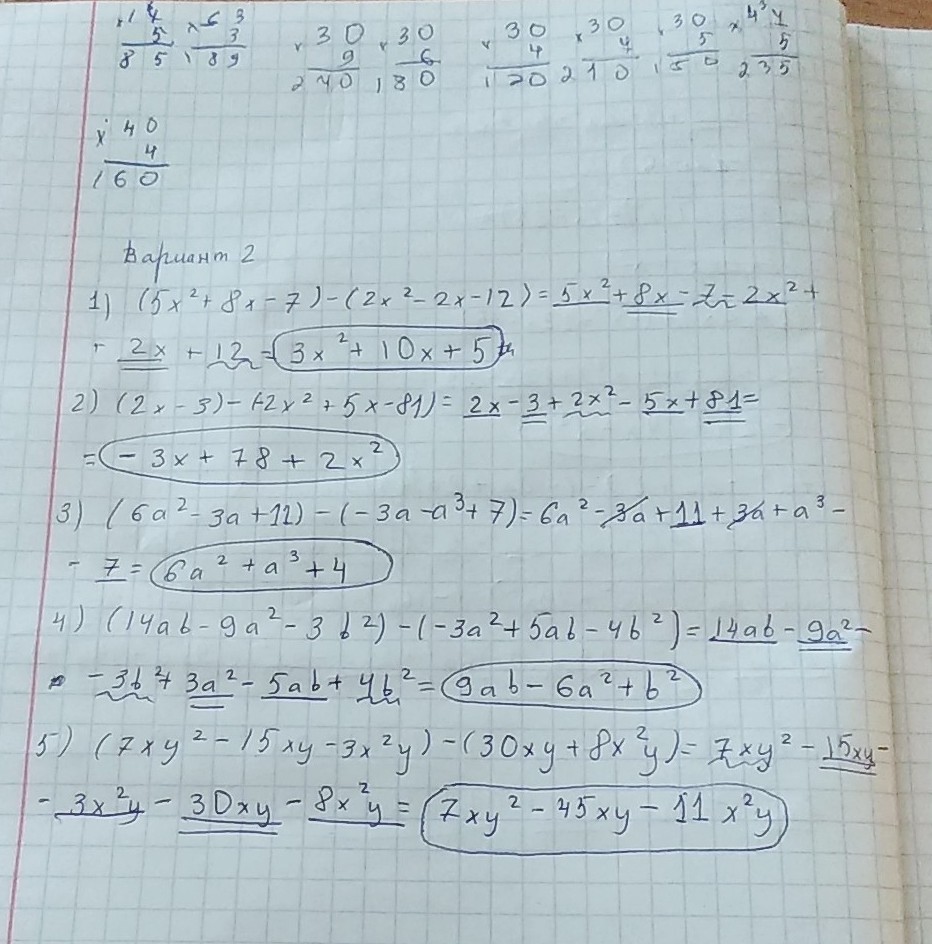 ×14 ×63 ×30 ×30 ×30 ×30 ×30 ×4³7
5 3 9 6 4 7 5 5
85 189 270 180 120 210 150 235
×40
4
160
Вариант 2
1) (5x² + 8x - 7) - (2x² - 2x - 12) = 5x² + 8x - 7 - 2x² +
+ 2x + 12 = 3x² + 10x + 5
2) (2x - 3) - (-2x² + 5x - 81) = 2x - 3 + 2x² - 5x + 81 =
= - 3x + 78 + 2x²
3) (6a² - 3a + 11) - (-3a - a³ + 7) = 6a² - 3a + 11 + 3a + a³ -
- 7 = 6a² + a³ + 4
4) (14ab - 9a² - 3b²) - (-3a² + 5ab - 4b²) = 14ab - 9a² -
- 3b² + 3a² - 5ab + 4b² = 9ab - 6a² + b²
5) (7xy² - 15xy - 3x²y) - (30xy + 8x²y) = 7xy² - 15xy -
- 3x²y - 30xy - 8x²y = 7xy² - 45xy - 11x²y